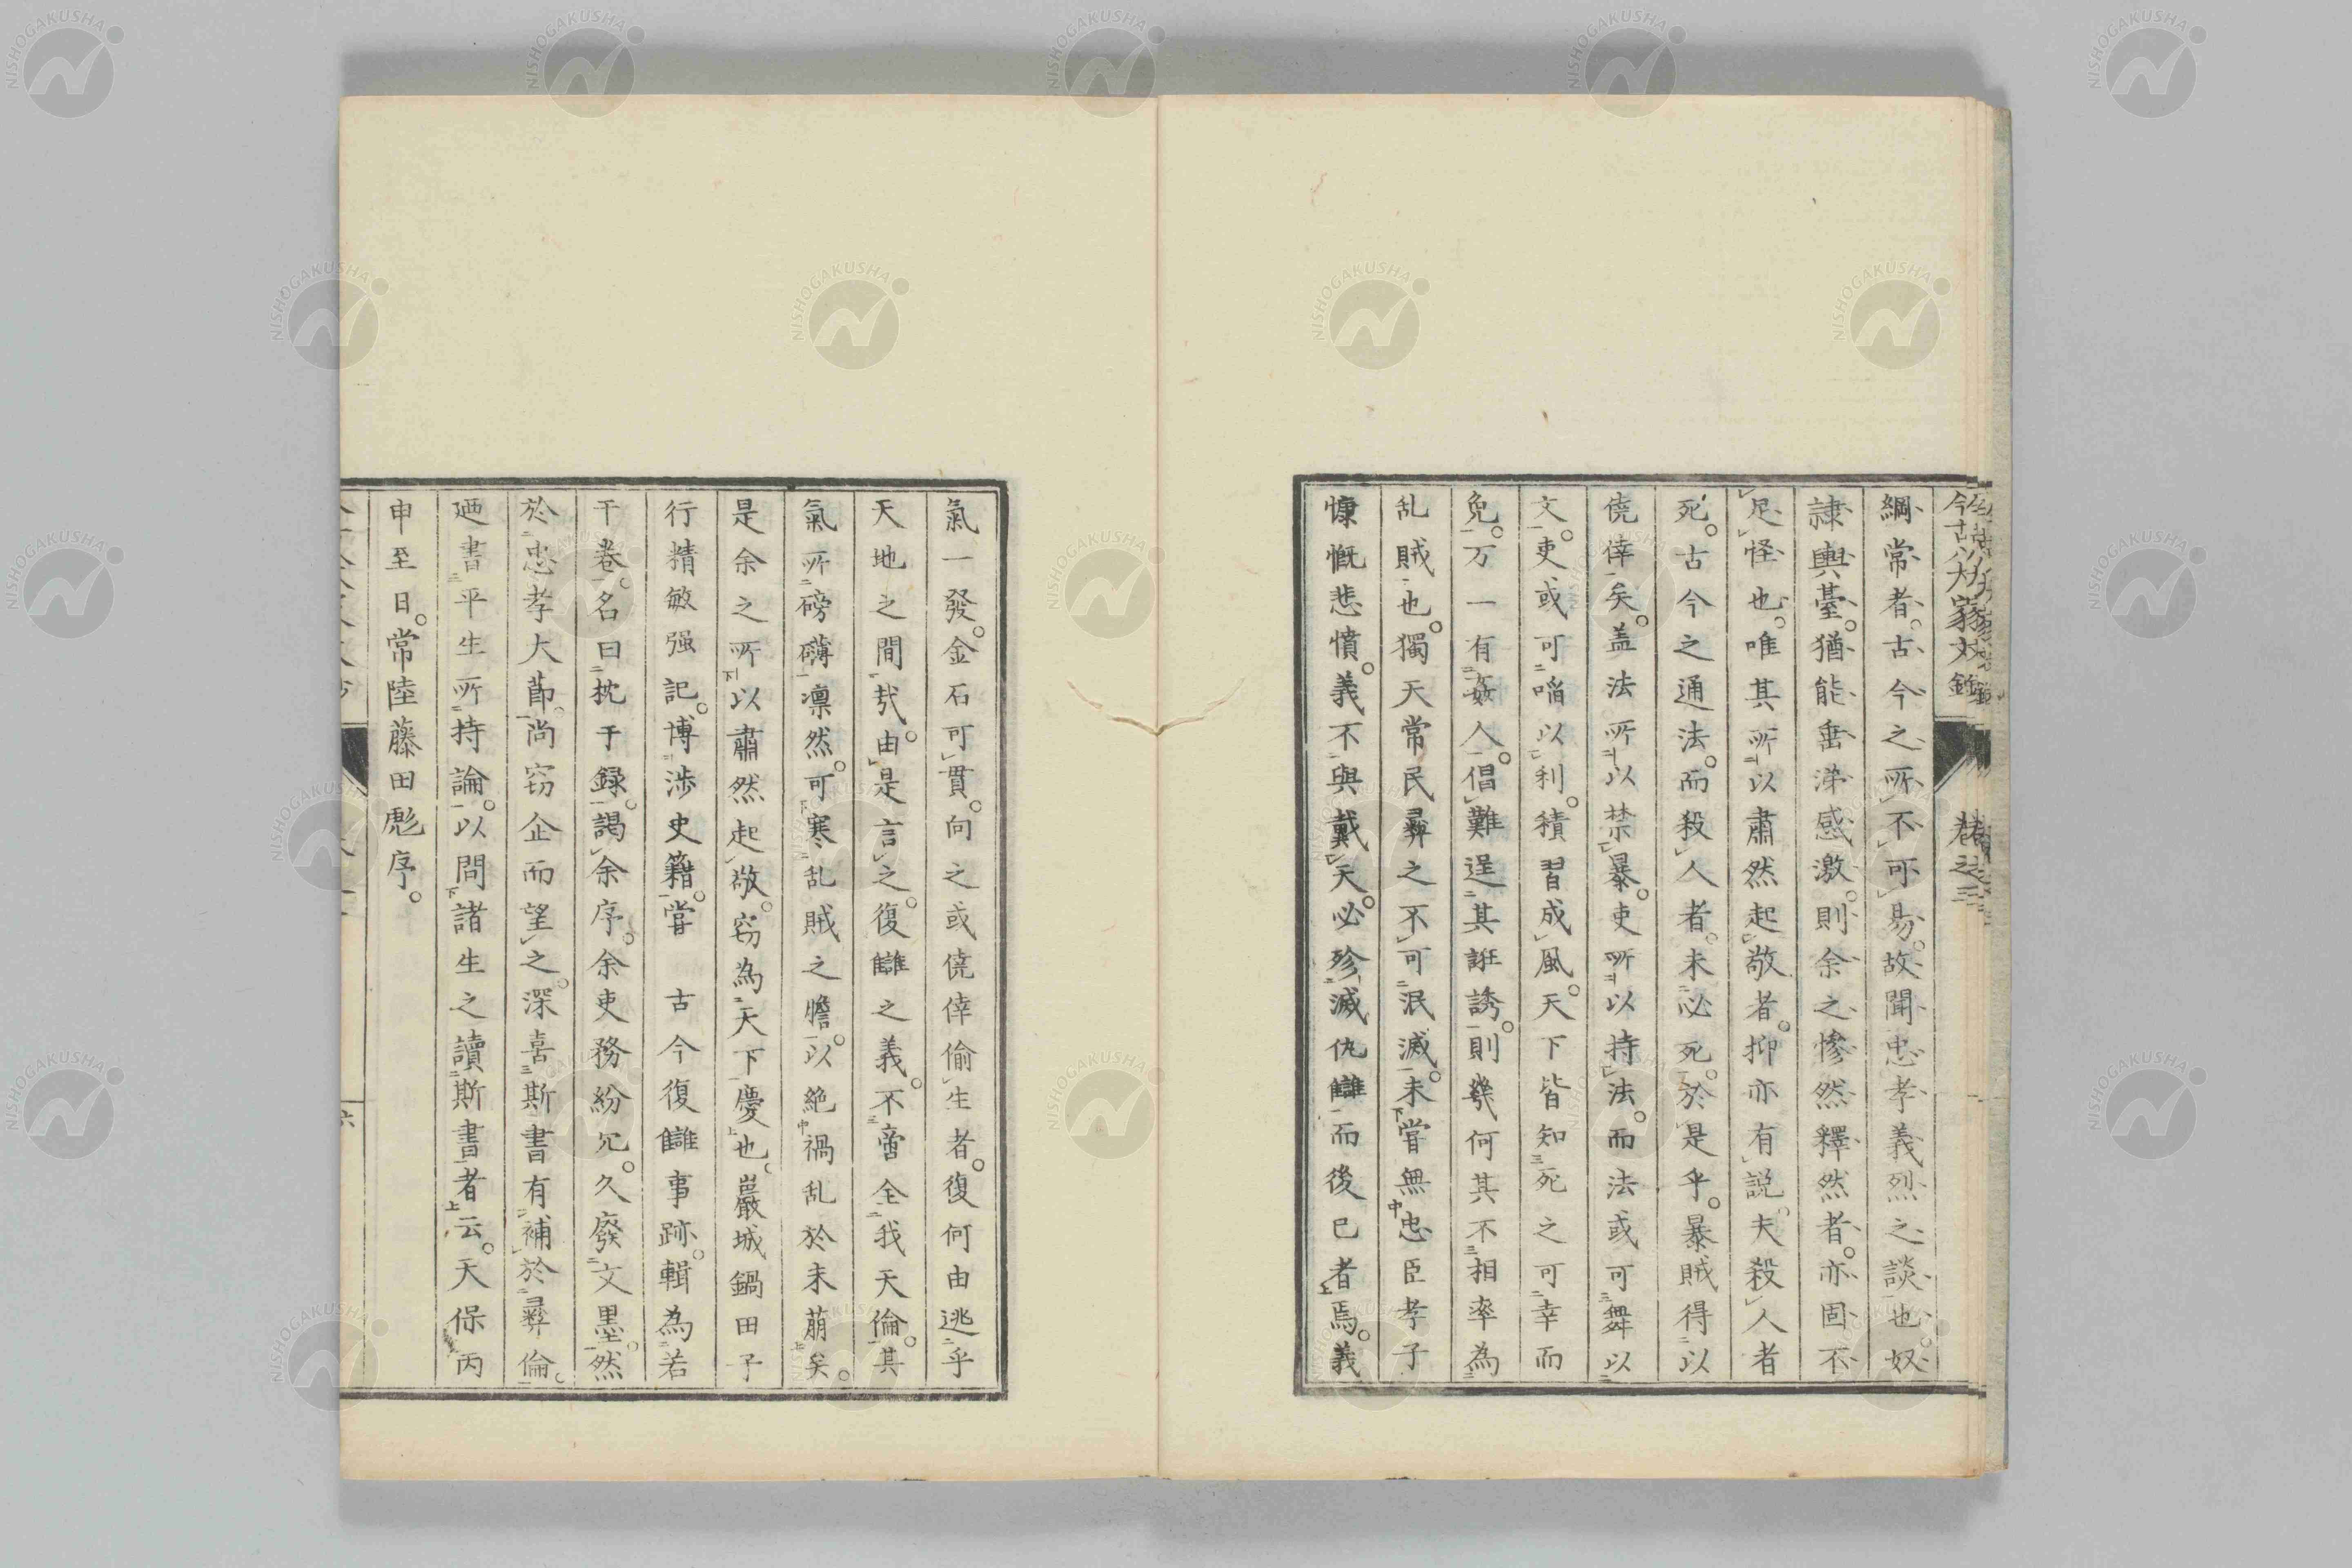 今古八大家文鈔
卷之三
綱常者古今之所不可易故聞忠孝義烈之談也奴
隷輿臺猶能垂涕感激則余之慘然釋然者亦固不
足怪也唯其所以肅然起敬者抑亦有説夫殺人者
死古今之通法而殺人者未必死於是乎暴賊得以
僥倖矣盖法所以禁暴吏所以持法而法或可舞以
文吏或可啗以利積習成風天下皆知死之可幸而
免万一有姦人倡難逞其誑誘則幾何其不相率為
乱賊也獨天常民彝之不可泯滅未嘗無忠臣孝子
慷慨悲憤義不與戴天必殄滅仇讎而後已者焉義
氣一發金石可貫向之或僥倖偷生者復何由逃乎
天地之間哉由是言之復讎之義不啻全我天倫其
氣所磅礴凛然可寒乱賊之膽以絶禍乱於未萠矣
是余之所以肅然起敬窃為天下慶也巖城鍋田子
行精敏强記博渉史籍嘗 古今復讎事跡輯為若
干巻名曰枕干録謁余序余吏務紛冗久廢文墨然
於忠孝大節尚窃企而望之深喜斯書有補於彝倫
廼書平生所持論以問諸生之讀斯書者云天保丙
申至日常陸藤田彪序